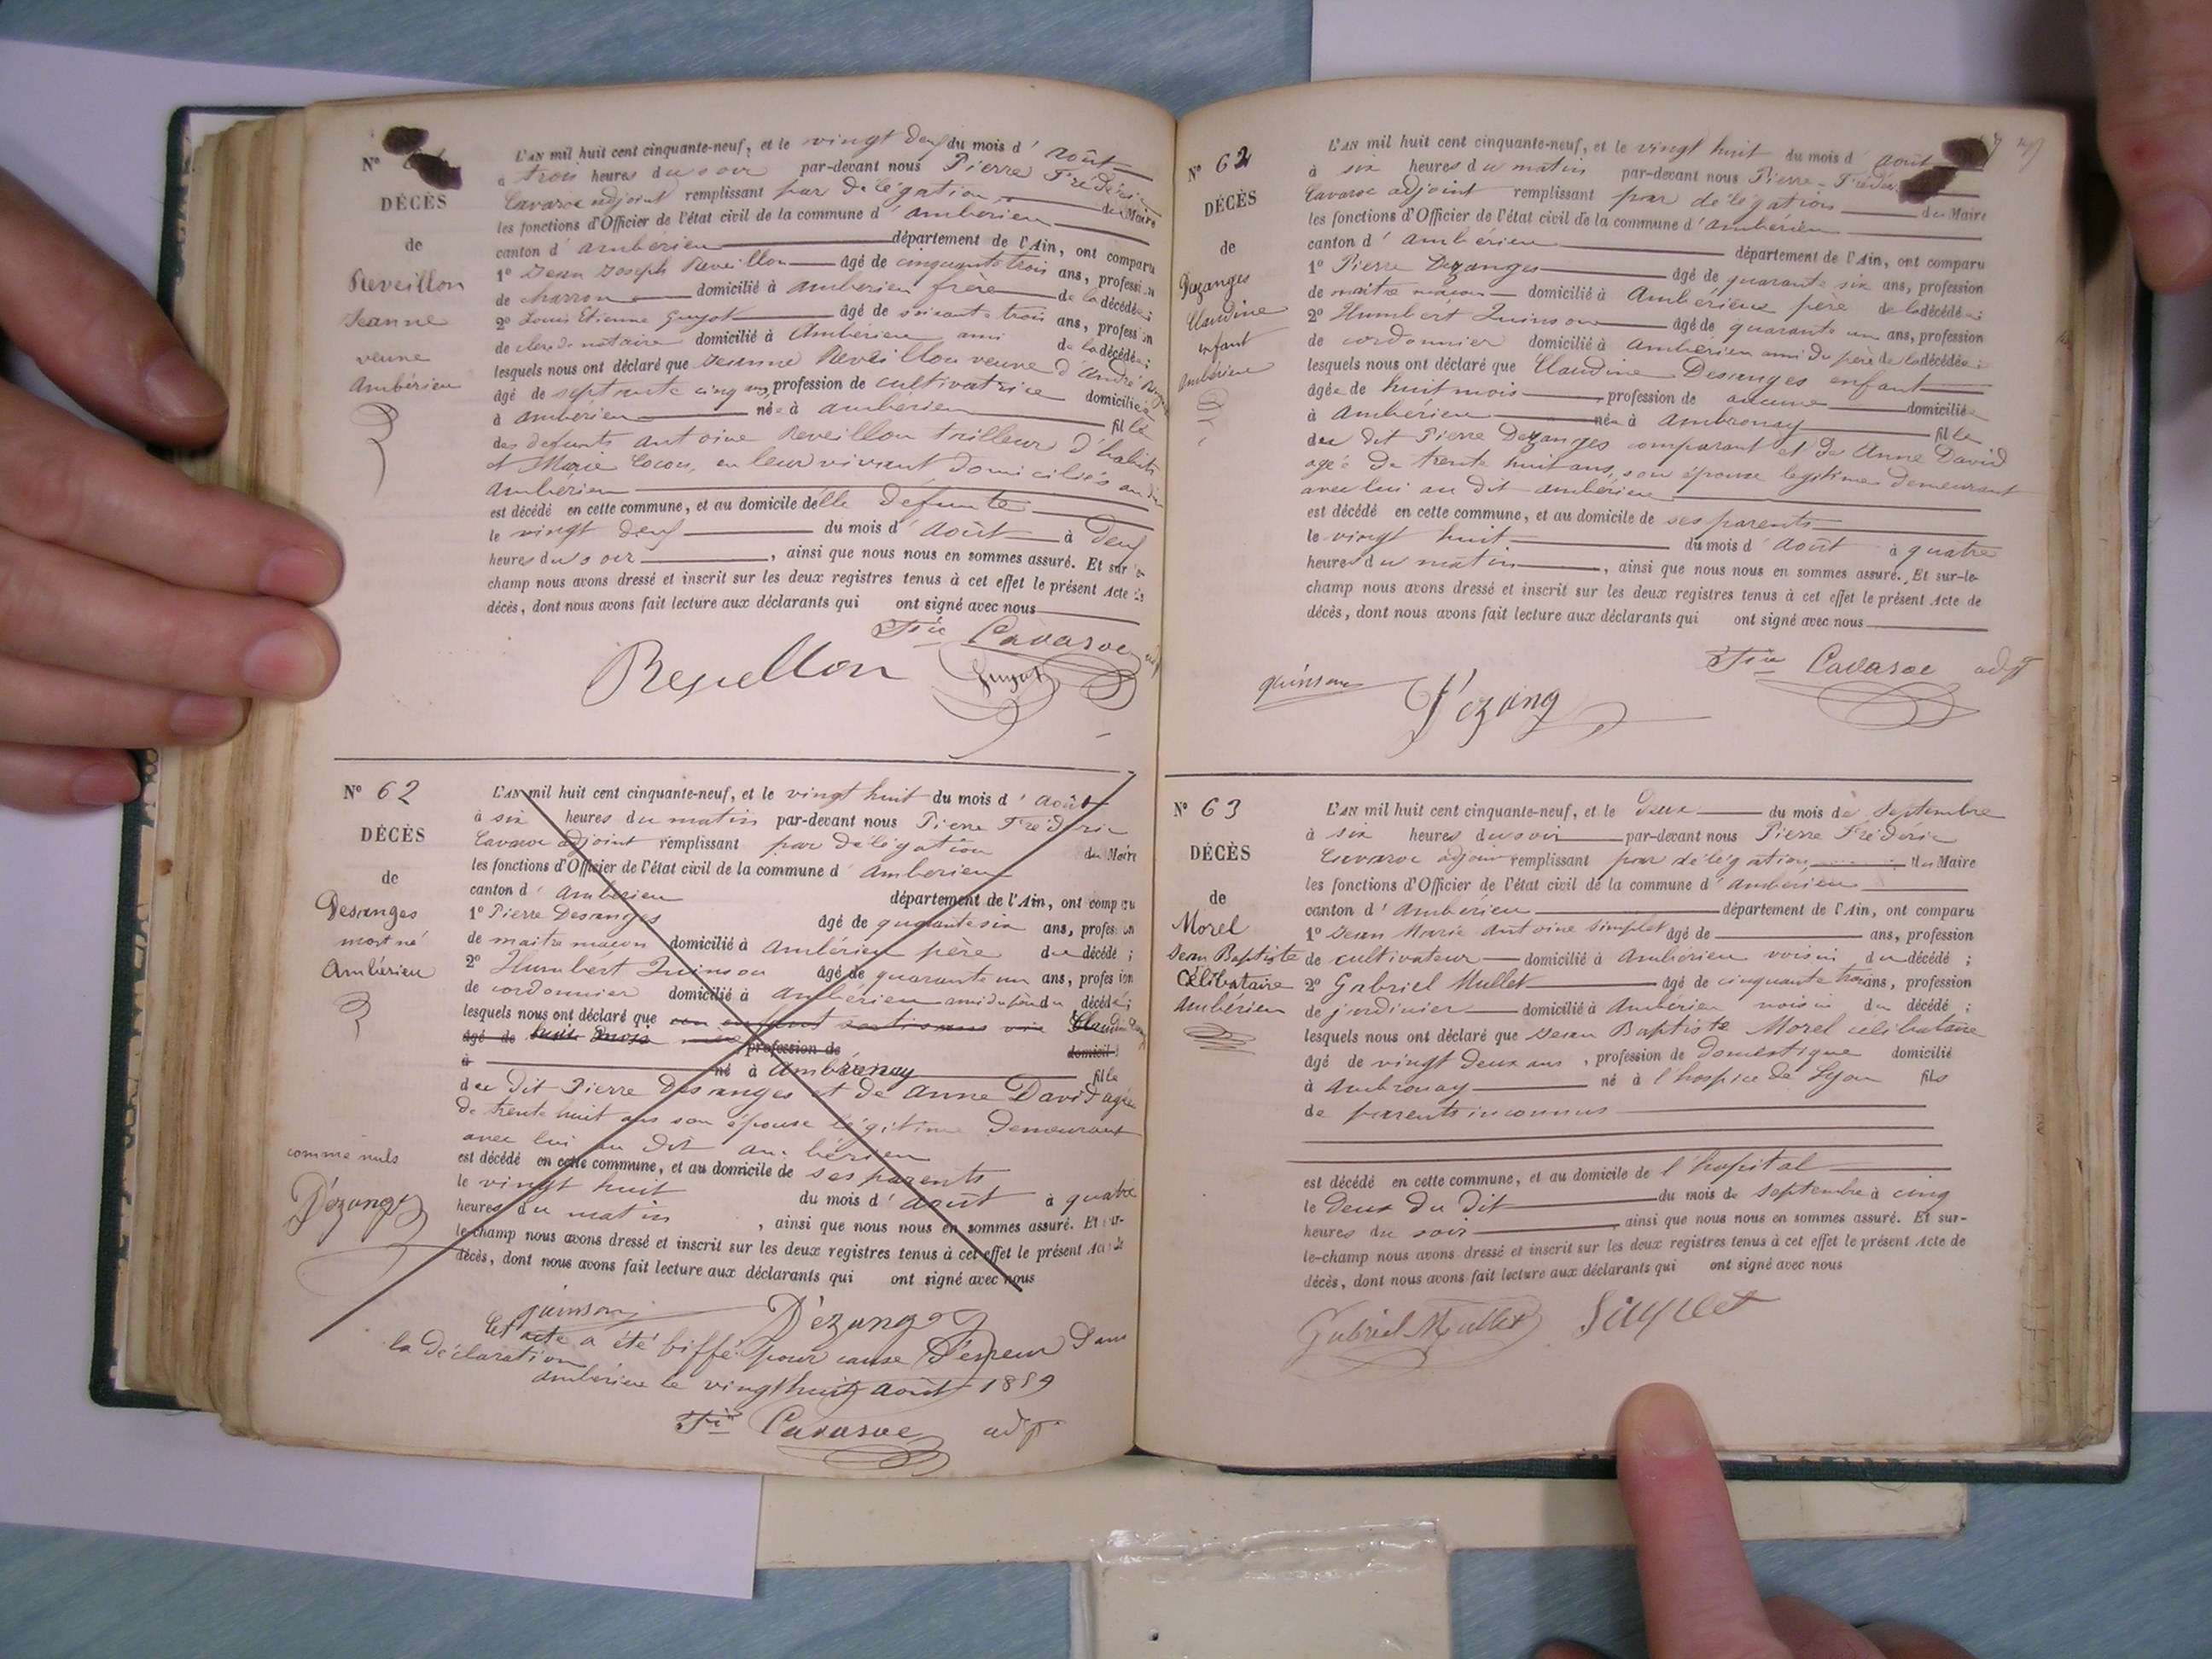 N°
DÉCÈS
de
Reveillon
Jeanne
veuve
Ambérieu
L'AN mil huit cent cinquante-neuf, et le vingt deux du mois d' Août
à trois heures du soir par-devant nous Pierre Frédéric
Cavaroc adjoint remplissant par délégation du Maire
les fonctions d'Officier de l'état civil de la commune d' ambérieu
canton d' ambérieu département de l'Ain, ont comparu
1° Jean Joseph Reveillon âgé de cinquante trois ans, profession
de charron domicilié à ambérieu frère de la décédée;
2° Louis Etienne Guyot âgé de soixante trois ans, profession
de clerc de notaire domicilié à Ambérieu ami de la décédée;
lesquels nous ont déclaré que Jeanne Reveillon veuve d'André
âgé de septante cinq ans, profession de cultivatrice domiciliée
à ambérieu née à ambérieu fille
des défunts antoine Reveillon tailleur d'habits
et Marie Cocon, en leur vivant domiciliés au dit
Ambérieu
est décédé en cette commune, et au domicile delle défunte
le vingt deux du mois d' Août à deux
heures du soir, ainsi que nous nous en sommes assuré. Et sur-le-
champ nous avons dressé et inscrit sur les deux registres tenus à cet effet le présent Acte de
décès, dont nous avons fait lecture aux déclarants qui ont signé avec nous
Fric Cavaroc adj
Reveillon Guyot
N° 62
DÉCÈS
de
Desanges
mort né
Ambérieu
L'AN mil huit cent cinquante-neuf, et le vingt huit du mois d' Août
à six heures du matin par-devant nous Pierre Frédéric
Cavaroc adjoint remplissant par délégation du Maire
les fonctions d'Officier de l'état civil de la commune d' ambérieu
canton d' ambérieu département de l'Ain, ont comparu
1° Pierre Desanges âgé de quarante six ans, profession
de maitre maçon domicilié à ambérieu père du décédé;
2° Humbert Quinson âgé de quarante un ans, profession
de cordonnier domicilié à ambérieu ami du père du décédé;
lesquels nous ont déclaré que un enfant sans vie Claudine
âgé de huit mois profession de domicil
à né à ambronay fille
du dit Pierre Desanges et de Anne David agée
de trente huit ans son épouse légitime demeurant
avec lui au dit ambérieu
est décédé en cette commune, et au domicile de ses parents
le vingt huit du mois d' Août à quatre
heures du matin, ainsi que nous nous en sommes assuré. Et sur-
le-champ nous avons dressé et inscrit sur les deux registres tenus à cet effet le présent Acte de
décès, dont nous avons fait lecture aux déclarants qui ont signé avec nous
comme nuls
Dézanges
quinson Dézanges
Cet acte a été biffé pour cause d'erreur dans
la déclaration
ambérieu le vingt huit août 1859
Fric Cavaroc adjt
N° 62
DÉCÈS
de
Dezanges
Claudine
enfant
Ambérieu
L'AN mil huit cent cinquante-neuf, et le vingt huit du mois d' Août
à six heures du matin par-devant nous Pierre-Fréderic
Cavaroc adjoint remplissant par délégation du Maire
les fonctions d'Officier de l'état civil de la commune d' ambérieu
canton d' ambérieu département de l'Ain, ont comparu
1° Pierre Dezanges âgé de quarante six ans, profession
de maitre maçon domicilié à Ambérieux père de la décédée;
2° Humbert Quinson âgé de quarante un ans, profession
de cordonnier domicilié à Ambérieu ami du père de la décédée;
lesquels nous ont déclaré que Claudine Desanges enfant
âgée de huit mois, profession de aucune domiciliée
à Ambérieu née à Ambronay fille
du dit Pierre Dezanges comparant et de Anne David
agée de trente huit ans, son épouse legitime demeurant
avec lui au dit ambérieu
est décédé en cette commune, et au domicile de ses parents
le vingt huit du mois d' Août à quatre
heures du matin, ainsi que nous nous en sommes assuré. Et sur-le-
champ nous avons dressé et inscrit sur les deux registres tenus à cet effet le présent Acte de
décès, dont nous avons fait lecture aux déclarants qui ont signé avec nous
Fric Cavaroc adjt
quinson Dézang
N° 63
DÉCÈS
de
Morel
Jean Baptiste
Célibataire
Ambérieu
L'AN mil huit cent cinquante-neuf, et le deux du mois de Septembre
à six heures du soir par-devant nous Pierre Fréderic
Cavaroc adjoint remplissant par délégation du Maire
les fonctions d'Officier de l'état civil de la commune d' ambérieu
canton d' Ambérieu département de l'Ain, ont comparu
1° Jean Marie Antoine Simplet âgé de ans, profession
de cultivateur domicilié à Ambérieu voisin du décédé;
2° Gabriel Mullet âgé de cinquante trois ans, profession
de jardinier domicilié à Ambérieu voisin du décédé;
lesquels nous ont déclaré que Jean Baptiste Morel célibataire
âgé de vingt deux ans, profession de domestique domicilié
à Ambronay né à l'hospice de Lyon fils
de parents inconnus
est décédé en cette commune, et au domicile de l'hopital
le deux du dit du mois de Septembre à cinq
heures du soir, ainsi que nous nous en sommes assuré. Et sur-
le-champ nous avons dressé et inscrit sur les deux registres tenus à cet effet le présent Acte de
décès, dont nous avons fait lecture aux déclarants qui ont signé avec nous
Gabriel Mullet Simplet